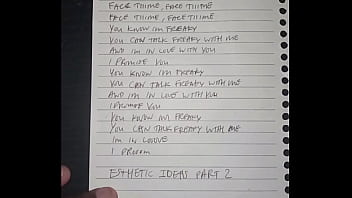 FACE TIIME, FACE TIIME
FACE TIIME, FACE TIIME
YOU KNOW IM FREAKY
YOU CAN TALK FREAKY WITH ME
AND IM IN LOVE WITH YOU
I PROMISE YOU
YOU KNOW IM FREAKY
YOU CAN TALK FREAKY WITH ME
AND IM IN LOVE WITH YOU
I PROMISE YOU
YOU KNOW IM FREAKY
YOU CAN TALK FREAKY WITH ME
IM IN LOOVE
I
ESTHETIC IDEAS PART 2